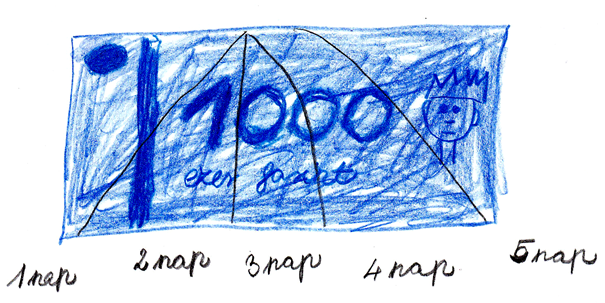 1000
ezer forint
1 nap 2 nap 3 nap 4 nap 5 nap